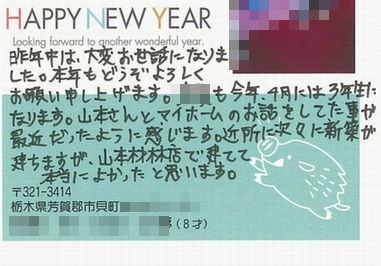 HAPPY NEW YEAR
Looking forward to another wonderful year.
昨年中は、大変お世話になりま
した。本年もどうぞよろしく
お願い申し上げます。 も今年、4月には3年生に
なります。山本さんとマイホームのお話をしてた事が
最近だったように感じます。近所に次々に新築が
建ちますが、山本材木店で建てて
本当によかったと思います。
〒321-3414
栃木県芳賀郡市貝町
(8才)